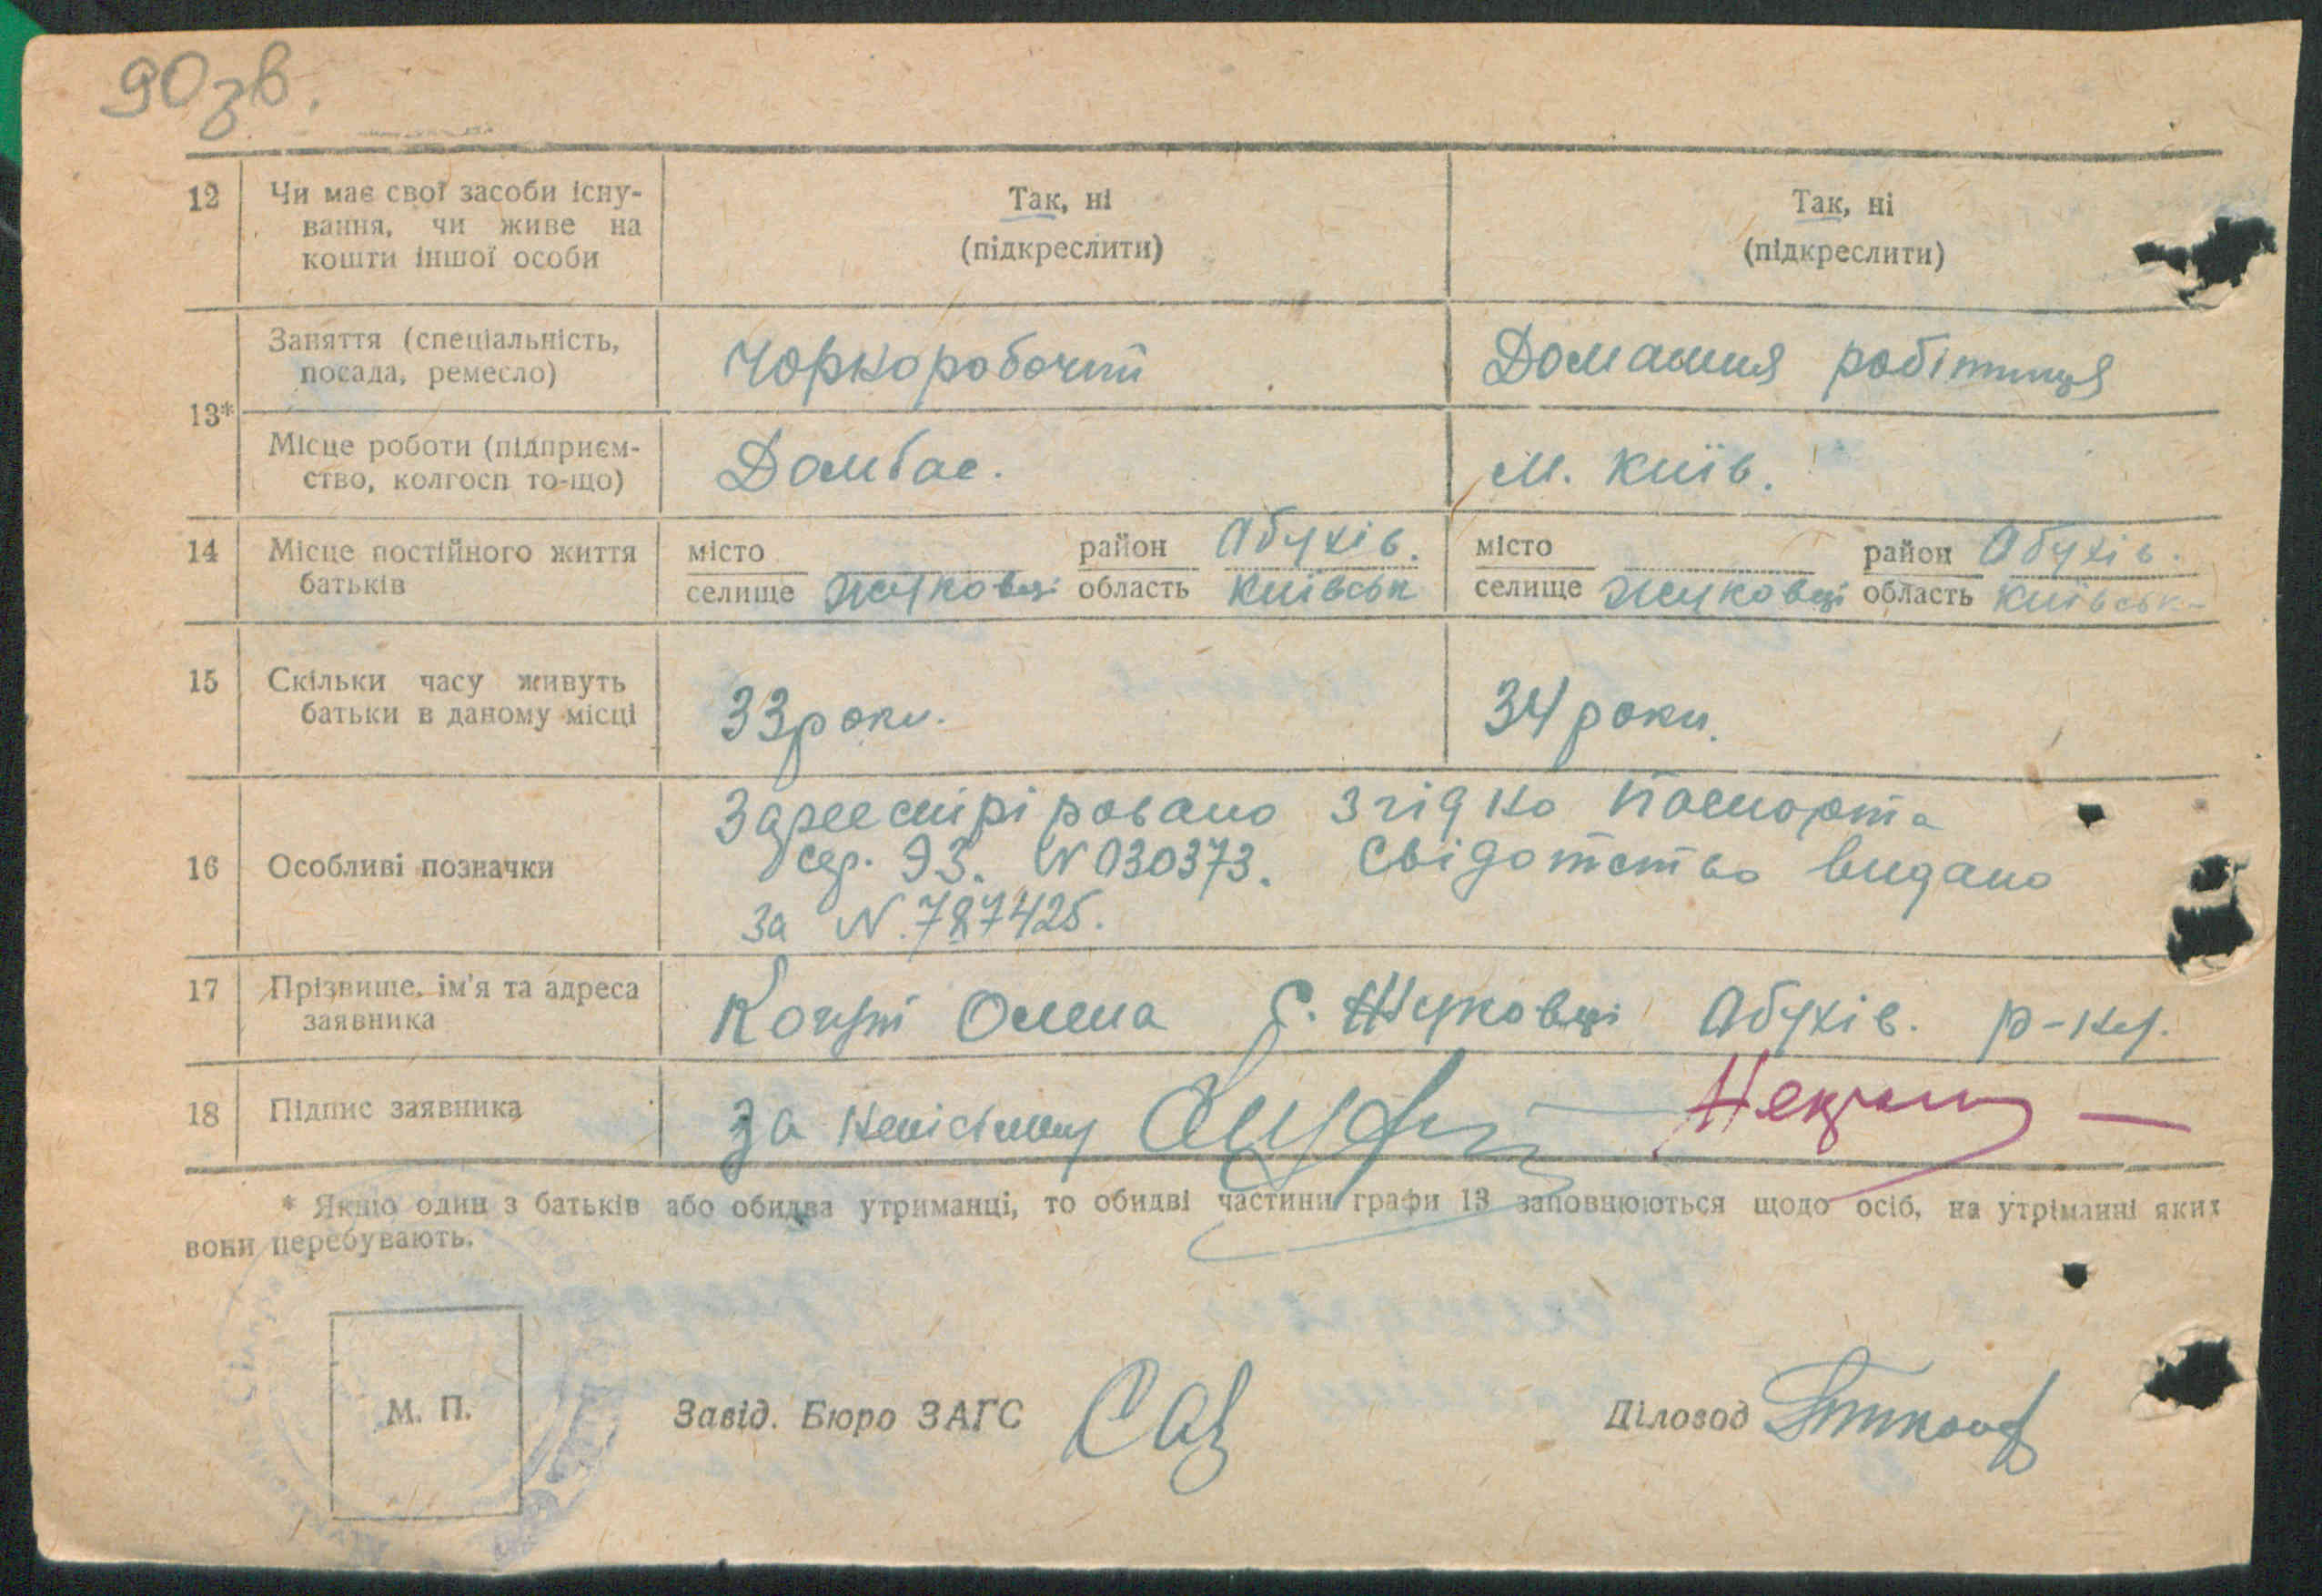 90зв.
12 Чи має свої засоби існу-
вання, чи живе на
кошти іншої особи
Так, ні
(підкреслити)
Так, ні
(підкреслити)
13*
Заняття (спеціальність,
посада, ремесло)
Чорноробочий
Домашня робітниця
Місце роботи (підприєм-
ство, колгосп то-що)
Домбас.
м. Київ.
14 Місце постійного життя
батьків
місто район Абухів.
селище Жуковці область Київськ
місто район Абухів.
селище Жуковці область Київськ
15 Скільки часу живуть
батьки в даному місці
33 роки.
34 роки.
16 Особливі позначки
Зареестріровано згідно паспорта
сер. ЯЗ. N 030373. Свідотство видано
за N. 787425.
17 Прізвище, ім'я та адреса
заявника
Олена С. Жуковці Абухів. р-ну.
18 Підпис заявника
за
* Якщо один з батьків або обидва утриманці, то обидві частини графи 13 заповнюються щодо осіб, на утріманні яких
вони перебувають.
М. П.
Завід. Бюро ЗАГС
Діловод